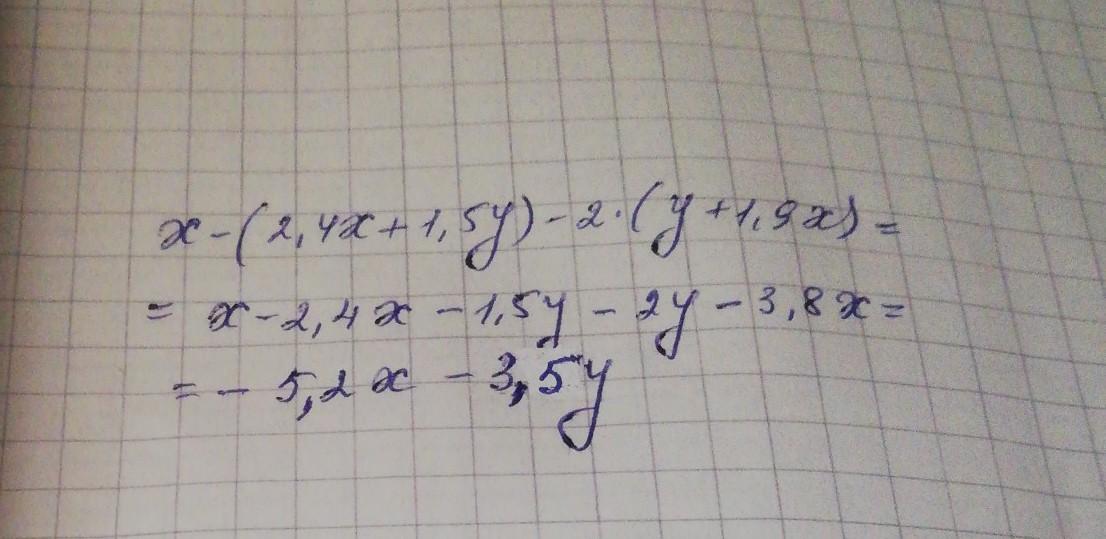 x - (2,4x + 1,5y) - 2 · (y + 1,9x) =
= x - 2,4x - 1,5y - 2y - 3,8x =
= - 5,2x - 3,5y